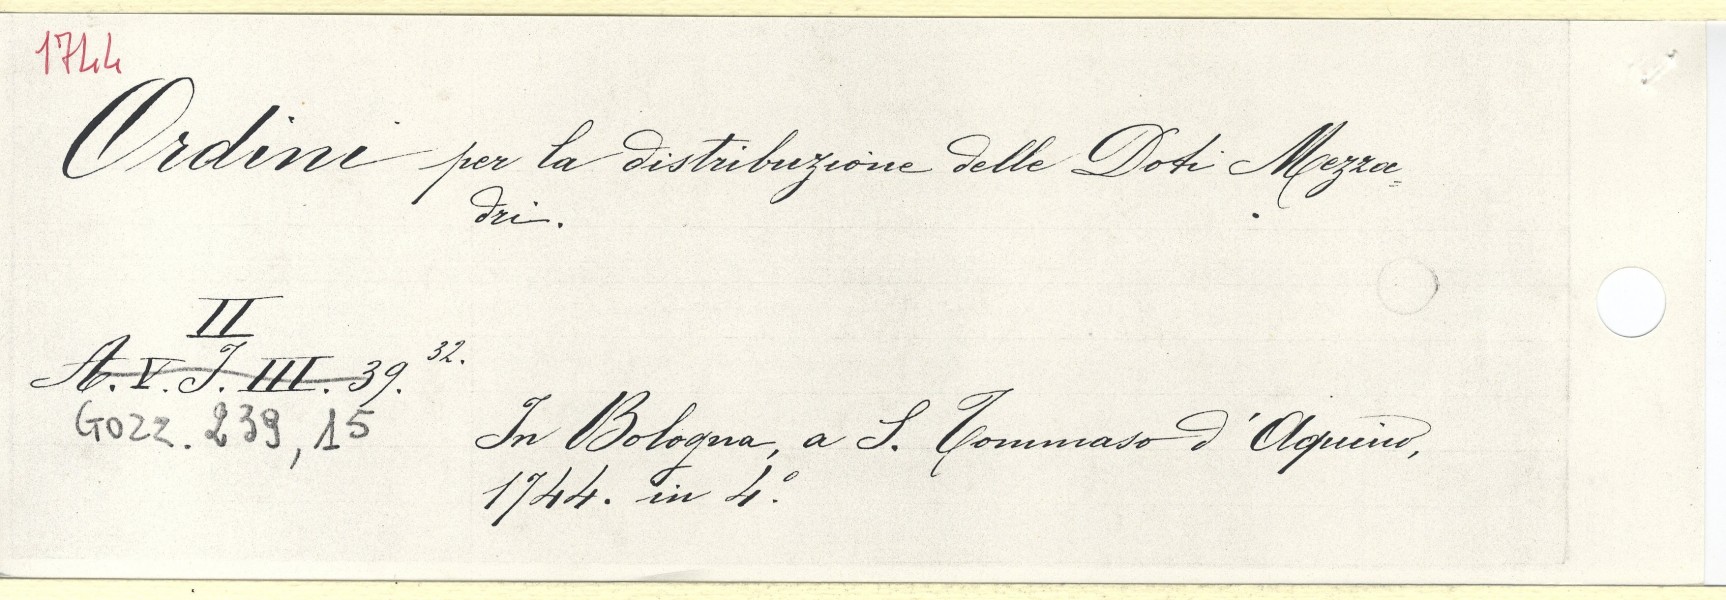 1744
Ordini per la distribuzione delle Doti Mezza=
dri.
II
A. V. J. III. 39. 32.
Gozz. 239, 15
In Bologna, a S. Tommaso d'Aquino,
1744. in 4°.